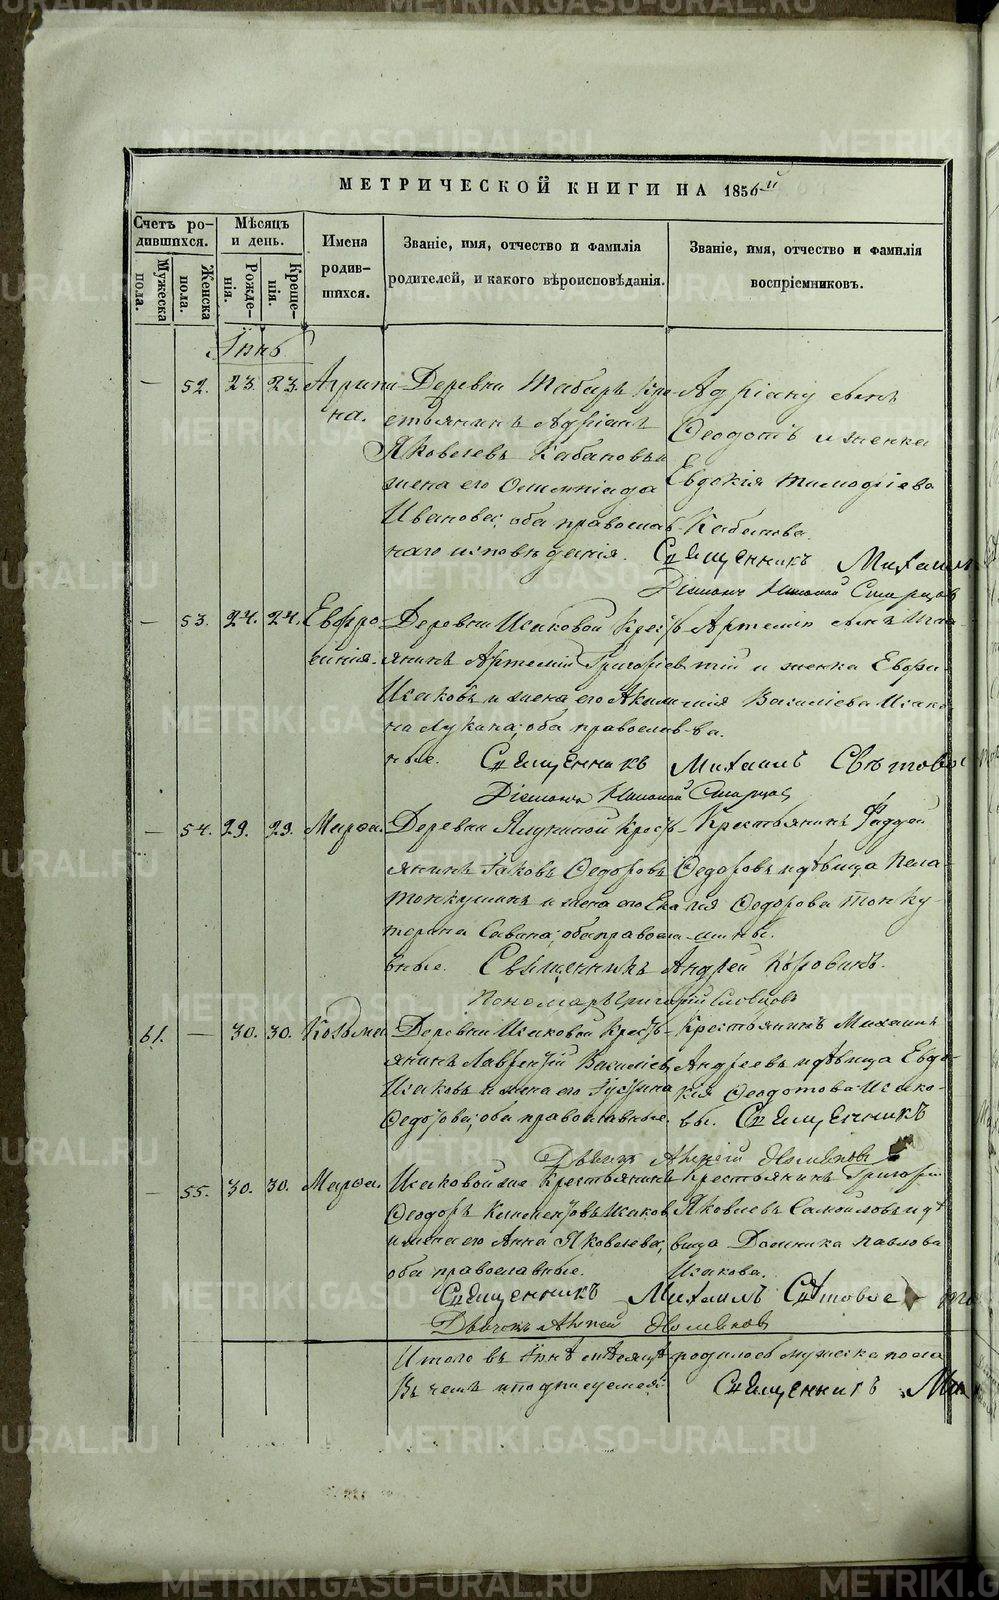 МЕТРИЧЕСКОЙ КНИГИ НА 1856й
Счетъ родившихся.
Мужеска пола.
Женска пола.
Мѣсяцъ и день.
Рожденія.
Крещенія.
Имена родившихся.
Званіе, имя, отчество и фамилія родителей, и какого вѣроисповѣданія.
Званіе, имя, отчество и фамилія воспріемниковъ.
Іюнь
— 52. 23. 23. Агрипи-
на.
Деревни Табаръ Кре-
стьянинъ Адріанъ
Яковлевъ Кабановъ и
жена его Олимпіада
Иванова; оба православ-
наго исповѣданія.
Адріану сынъ
Ѳеодотъ и женка
Евдокія Тимофіева
Кабанова.
Священникъ Михаилъ
Діаконъ Старцов
— 53. 24. 24. Евфро-
синія.
Деревни Исаковой Крест-
янинъ Артемій Григоріев
Исаковъ и жена его Акили-
на Лукина; оба православ-
ные.
Артемію сынъ
тій и женка Евфро-
синія Василіева Исако-
ва.
Священникъ Михаилъ Свѣтово
Діаконъ Старцов
— 54. 29. 29. Марѳа.
Деревни Крест-
янинъ Іаковъ Ѳедоровъ
Топкушинъ и жена его Ека-
терина Савина; оба правосла-
вные.
Крестьянинъ Фаддей
Ѳедоровъ и дѣвица Пела-
гія Ѳедорова Топку-
шины.
Священникъ Андрей Коровинъ.
Пономарь Григорій Словцовъ
61. — 30. 30. Козьма
Деревни Исаковой Крест-
янинъ Лаврентій Василіев
Исаковъ и жена его Іустина
Ѳедорова; оба православные.
Крестьянинъ Михаилъ
Андреевъ и дѣвица Евдо-
кія Ѳеодотова Исако-
вы. Священникъ
Дьячекъ
— 55. 30. 30. Марѳа.
Исаковой же Крестьянинъ
Ѳеодоръ Климентовъ Исаков
и жена его Анна Яковлева;
оба православные.
Крестьянинъ Григорій
Яковлевъ Самойловъ и дѣ-
вица Домника Павлова
Исакова.
Священникъ Михаилъ
Дьячекъ
Итого въ Іюнѣ мѣсяцѣ родилось мужеска пола
Въ чемъ и подписуемся: Священникъ Мих
METRIKI.GASO-URAL.RU